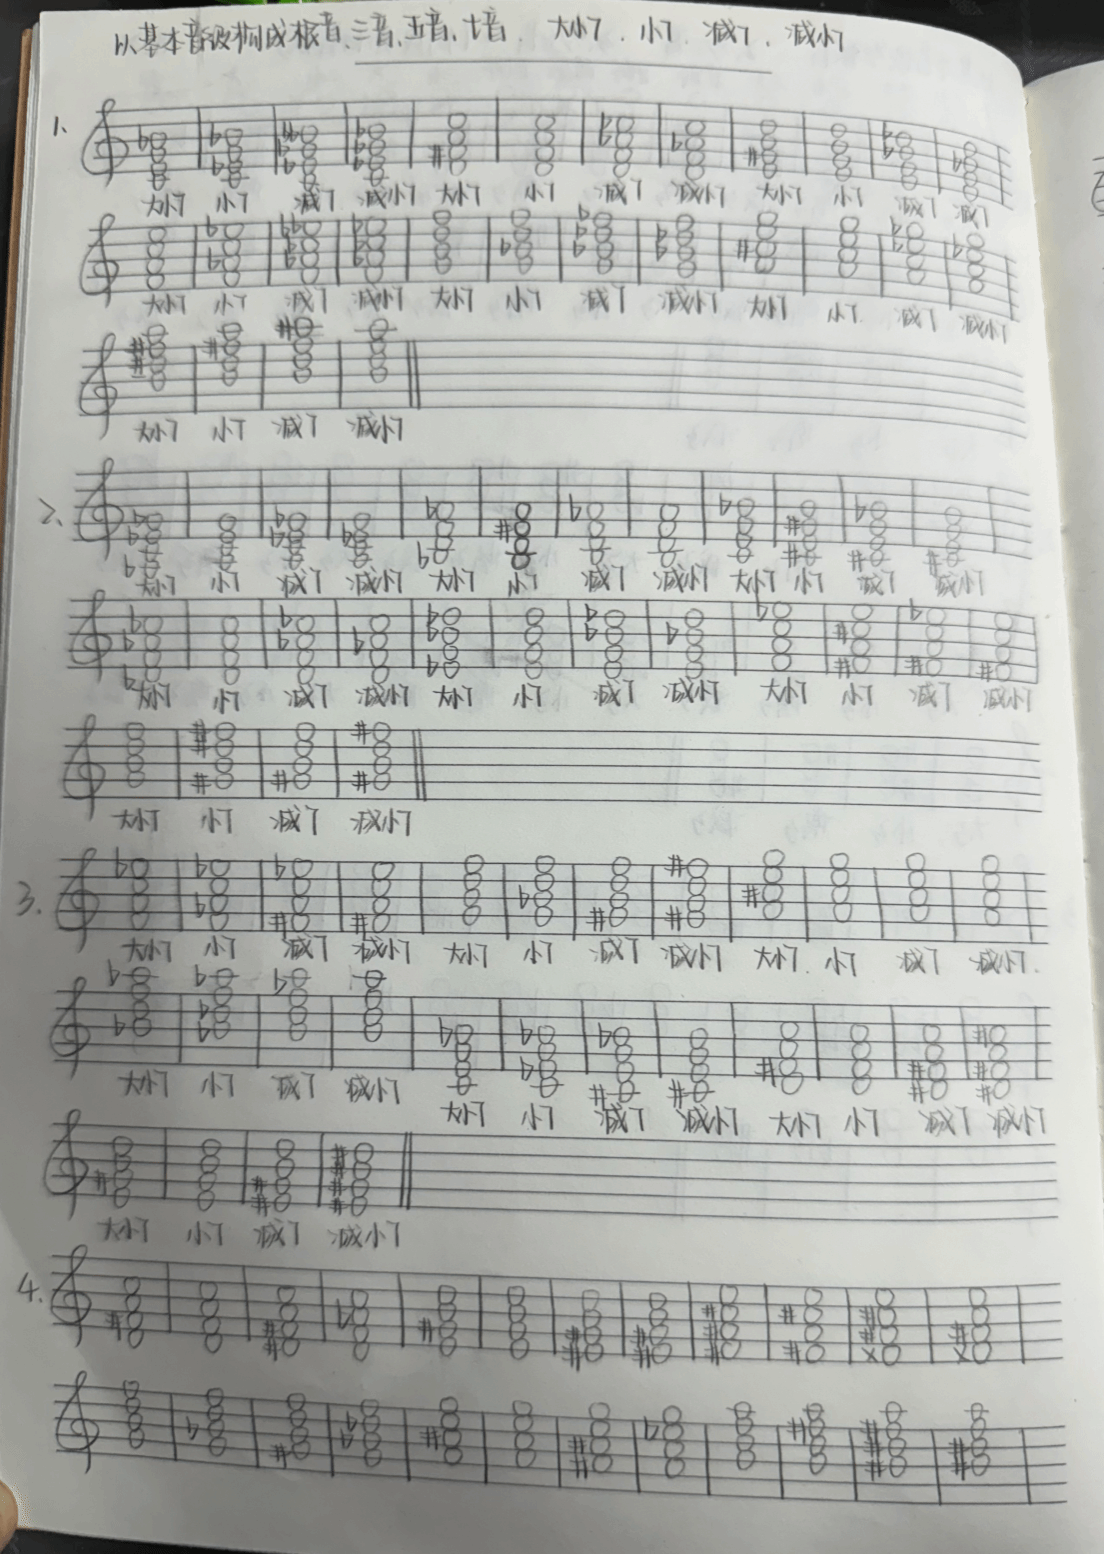 以基本音级构成根音、三音、五音、七音. 大小7. 小7. 减7. 减小7
1.
大小7 小7 减7 减小7 大小7 小7 减7 减小7 大小7 小7 减7 减7
大小7 小7 减7 减小7 大小7 小7 减7 减小7 大小7 小7. 减7 减小7
大小7 小7 减7 减小7
2.
大小7 小7 减7 减小7 大小7 小7 减7 减小7 大小7 小7 减7 减小7
大小7 小7 减7 减小7 大小7 小7 减7 减小7 大小7 小7 减7 减小7
大小7 小7 减7 减小7
3.
大小7 小7 减7 减小7 大小7 小7 减7 减小7 大小7. 小7 减7 减小7.
大小7 小7 减7 减小7 大小7 小7 减7 减小7 大小7 小7 减7 减小7
大小7 小7 减7 减小7
4.